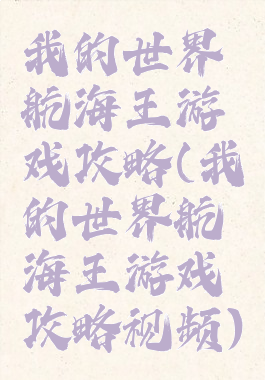 我的世界
航海王游
戏攻略(我
的世界航
海王游戏
攻略视频)